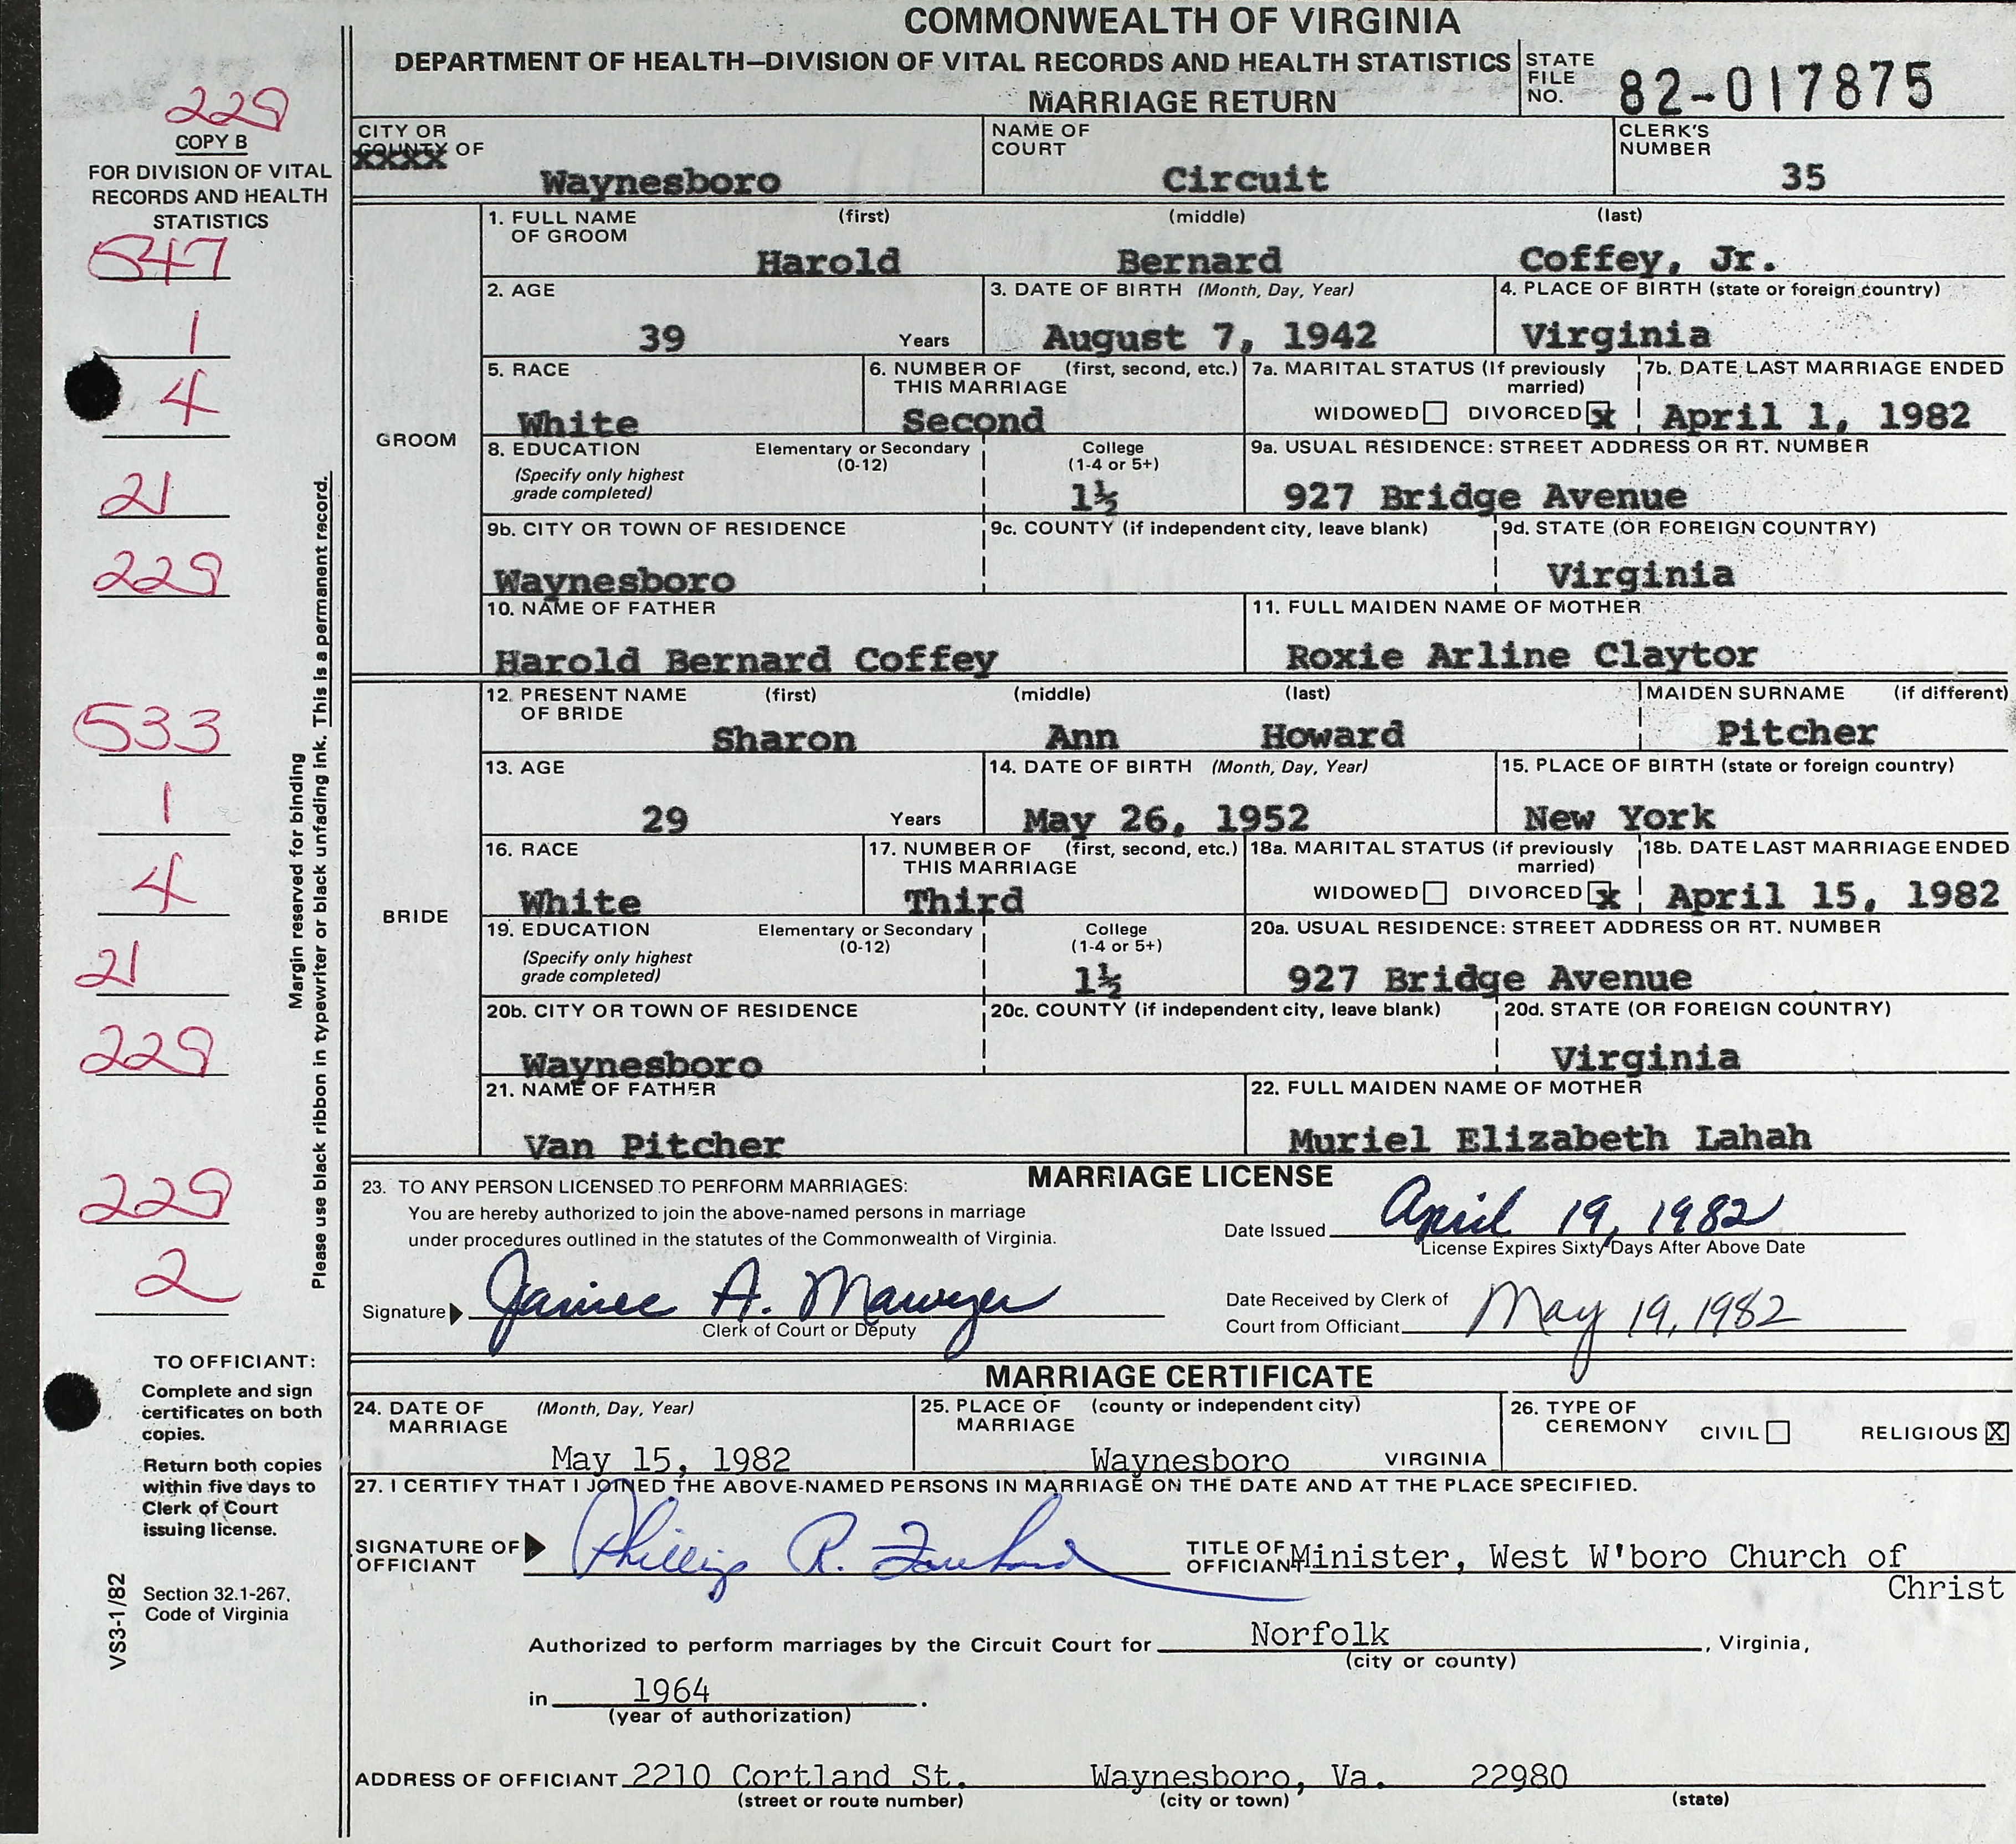 COMMONWEALTH OF VIRGINIA
DEPARTMENT OF HEALTH—DIVISION OF VITAL RECORDS AND HEALTH STATISTICS
MARRIAGE RETURN
STATE FILE NO. 82-017875
229
COPY B
FOR DIVISION OF VITAL
RECORDS AND HEALTH
STATISTICS
547
1
4
21
229
533
1
4
21
229
229
2
Margin reserved for binding
Please use black ribbon in typewriter or black unfading ink. This is a permanent record.
TO OFFICIANT:
Complete and sign
certificates on both
copies.
Return both copies
within five days to
Clerk of Court
issuing license.
VS3-1/82
Section 32.1-267,
Code of Virginia
CITY OR
COUNTY OF
Waynesboro
NAME OF
COURT
Circuit
CLERK'S
NUMBER
35
GROOM
1. FULL NAME OF GROOM (first) (middle) (last)
Harold Bernard Coffey, Jr.
2. AGE
39 Years
3. DATE OF BIRTH (Month, Day, Year)
August 7, 1942
4. PLACE OF BIRTH (state or foreign country)
Virginia
5. RACE
White
6. NUMBER OF THIS MARRIAGE (first, second, etc.)
Second
7a. MARITAL STATUS (If previously married)
WIDOWED DIVORCED x
7b. DATE LAST MARRIAGE ENDED
April 1, 1982
8. EDUCATION
(Specify only highest
grade completed)
Elementary or Secondary
(0-12)
College
(1-4 or 5+)
1½
9a. USUAL RESIDENCE: STREET ADDRESS OR RT. NUMBER
927 Bridge Avenue
9b. CITY OR TOWN OF RESIDENCE
Waynesboro
9c. COUNTY (if independent city, leave blank)
9d. STATE (OR FOREIGN COUNTRY)
Virginia
10. NAME OF FATHER
Harold Bernard Coffey
11. FULL MAIDEN NAME OF MOTHER
Roxie Arline Claytor
BRIDE
12. PRESENT NAME OF BRIDE (first) (middle) (last)
Sharon Ann Howard
MAIDEN SURNAME (if different)
Pitcher
13. AGE
29 Years
14. DATE OF BIRTH (Month, Day, Year)
May 26, 1952
15. PLACE OF BIRTH (state or foreign country)
New York
16. RACE
White
17. NUMBER OF THIS MARRIAGE (first, second, etc.)
Third
18a. MARITAL STATUS (if previously married)
WIDOWED DIVORCED x
18b. DATE LAST MARRIAGE ENDED
April 15, 1982
19. EDUCATION
(Specify only highest
grade completed)
Elementary or Secondary
(0-12)
College
(1-4 or 5+)
1½
20a. USUAL RESIDENCE: STREET ADDRESS OR RT. NUMBER
927 Bridge Avenue
20b. CITY OR TOWN OF RESIDENCE
Waynesboro
20c. COUNTY (if independent city, leave blank)
20d. STATE (OR FOREIGN COUNTRY)
Virginia
21. NAME OF FATHER
Van Pitcher
22. FULL MAIDEN NAME OF MOTHER
Muriel Elizabeth Lahah
MARRIAGE LICENSE
23. TO ANY PERSON LICENSED TO PERFORM MARRIAGES:
You are hereby authorized to join the above-named persons in marriage
under procedures outlined in the statutes of the Commonwealth of Virginia.
Date Issued April 19, 1982
License Expires Sixty Days After Above Date
Signature Janiec A. Mawyer
Clerk of Court or Deputy
Date Received by Clerk of
Court from Officiant May 19, 1982
MARRIAGE CERTIFICATE
24. DATE OF MARRIAGE (Month, Day, Year)
May 15, 1982
25. PLACE OF MARRIAGE (county or independent city)
Waynesboro VIRGINIA
26. TYPE OF CEREMONY CIVIL RELIGIOUS X
27. I CERTIFY THAT I JOINED THE ABOVE-NAMED PERSONS IN MARRIAGE ON THE DATE AND AT THE PLACE SPECIFIED.
SIGNATURE OF OFFICIANT Phillip R.
TITLE OF OFFICIANT Minister, West W'boro Church of
Christ
Authorized to perform marriages by the Circuit Court for Norfolk, Virginia,
(city or county)
in 1964.
(year of authorization)
ADDRESS OF OFFICIANT 2210 Cortland St. Waynesboro, Va. 22980
(street or route number) (city or town) (state)